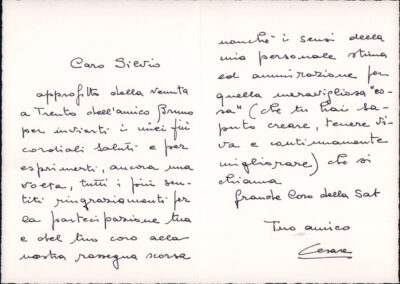 Caro Silvio
approfitto della venuta
a Trento dell'amico Bruno
per inviarti i miei più
cordiali saluti e per
esprimerti, ancora una
volta, tutti i più sen-
titi ringraziamenti per
la partecipazione tua
e del tuo coro alla
nostra rassegna scorsa
nonchè i sensi della
mia personale stima
ed ammirazione per
quella meravigliosa "co-
sa" (che tu hai sa-
puto creare, tenere vi-
va e continuamente
migliorare) che si
chiama
Grande Coro della Sat
Tuo amico
Cesare